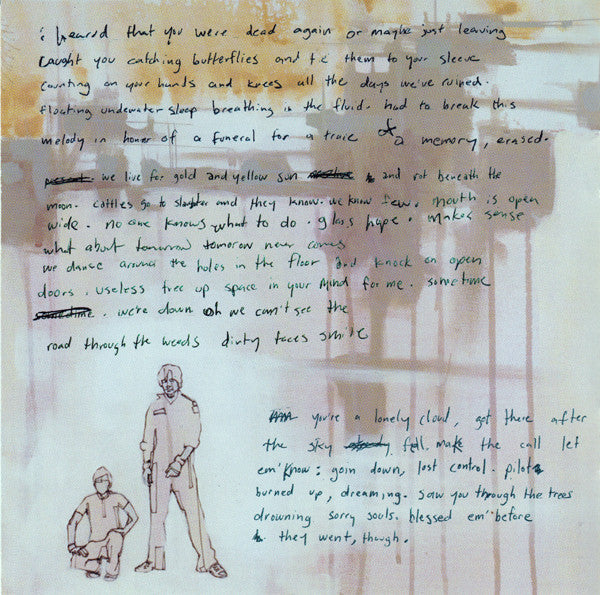 i heared that you were dead again or maybe just leaving
caught you catching butterflies and tie them to your sleeve
counting on your hands and knees all the days we've ruined.
floating underwater sleep breathing in the fluid. had to break this
melody in honor of a funeral for a a memory, erased.
we live for gold and yellow sun and rot beneath the
moon. cattles go to slaughter and they know. we know few. mouth is open
wide. no one knows what to do. glass hope. makes sense
what about tomorrow tomorow never comes
we danse around the holes in the floor and knock on open
doors. useless tree up space in your mind for me. sometime
sometime. we're down oh we can't see the
road through the weeds dirty faces smile
you're a lonely cloud, got there after
the sky fell. make the call let
em' know: goin down, lost control. pilots
burned up, dreaming. saw you through the trees
drowning sorry souls. blessed em' before
they went, though.